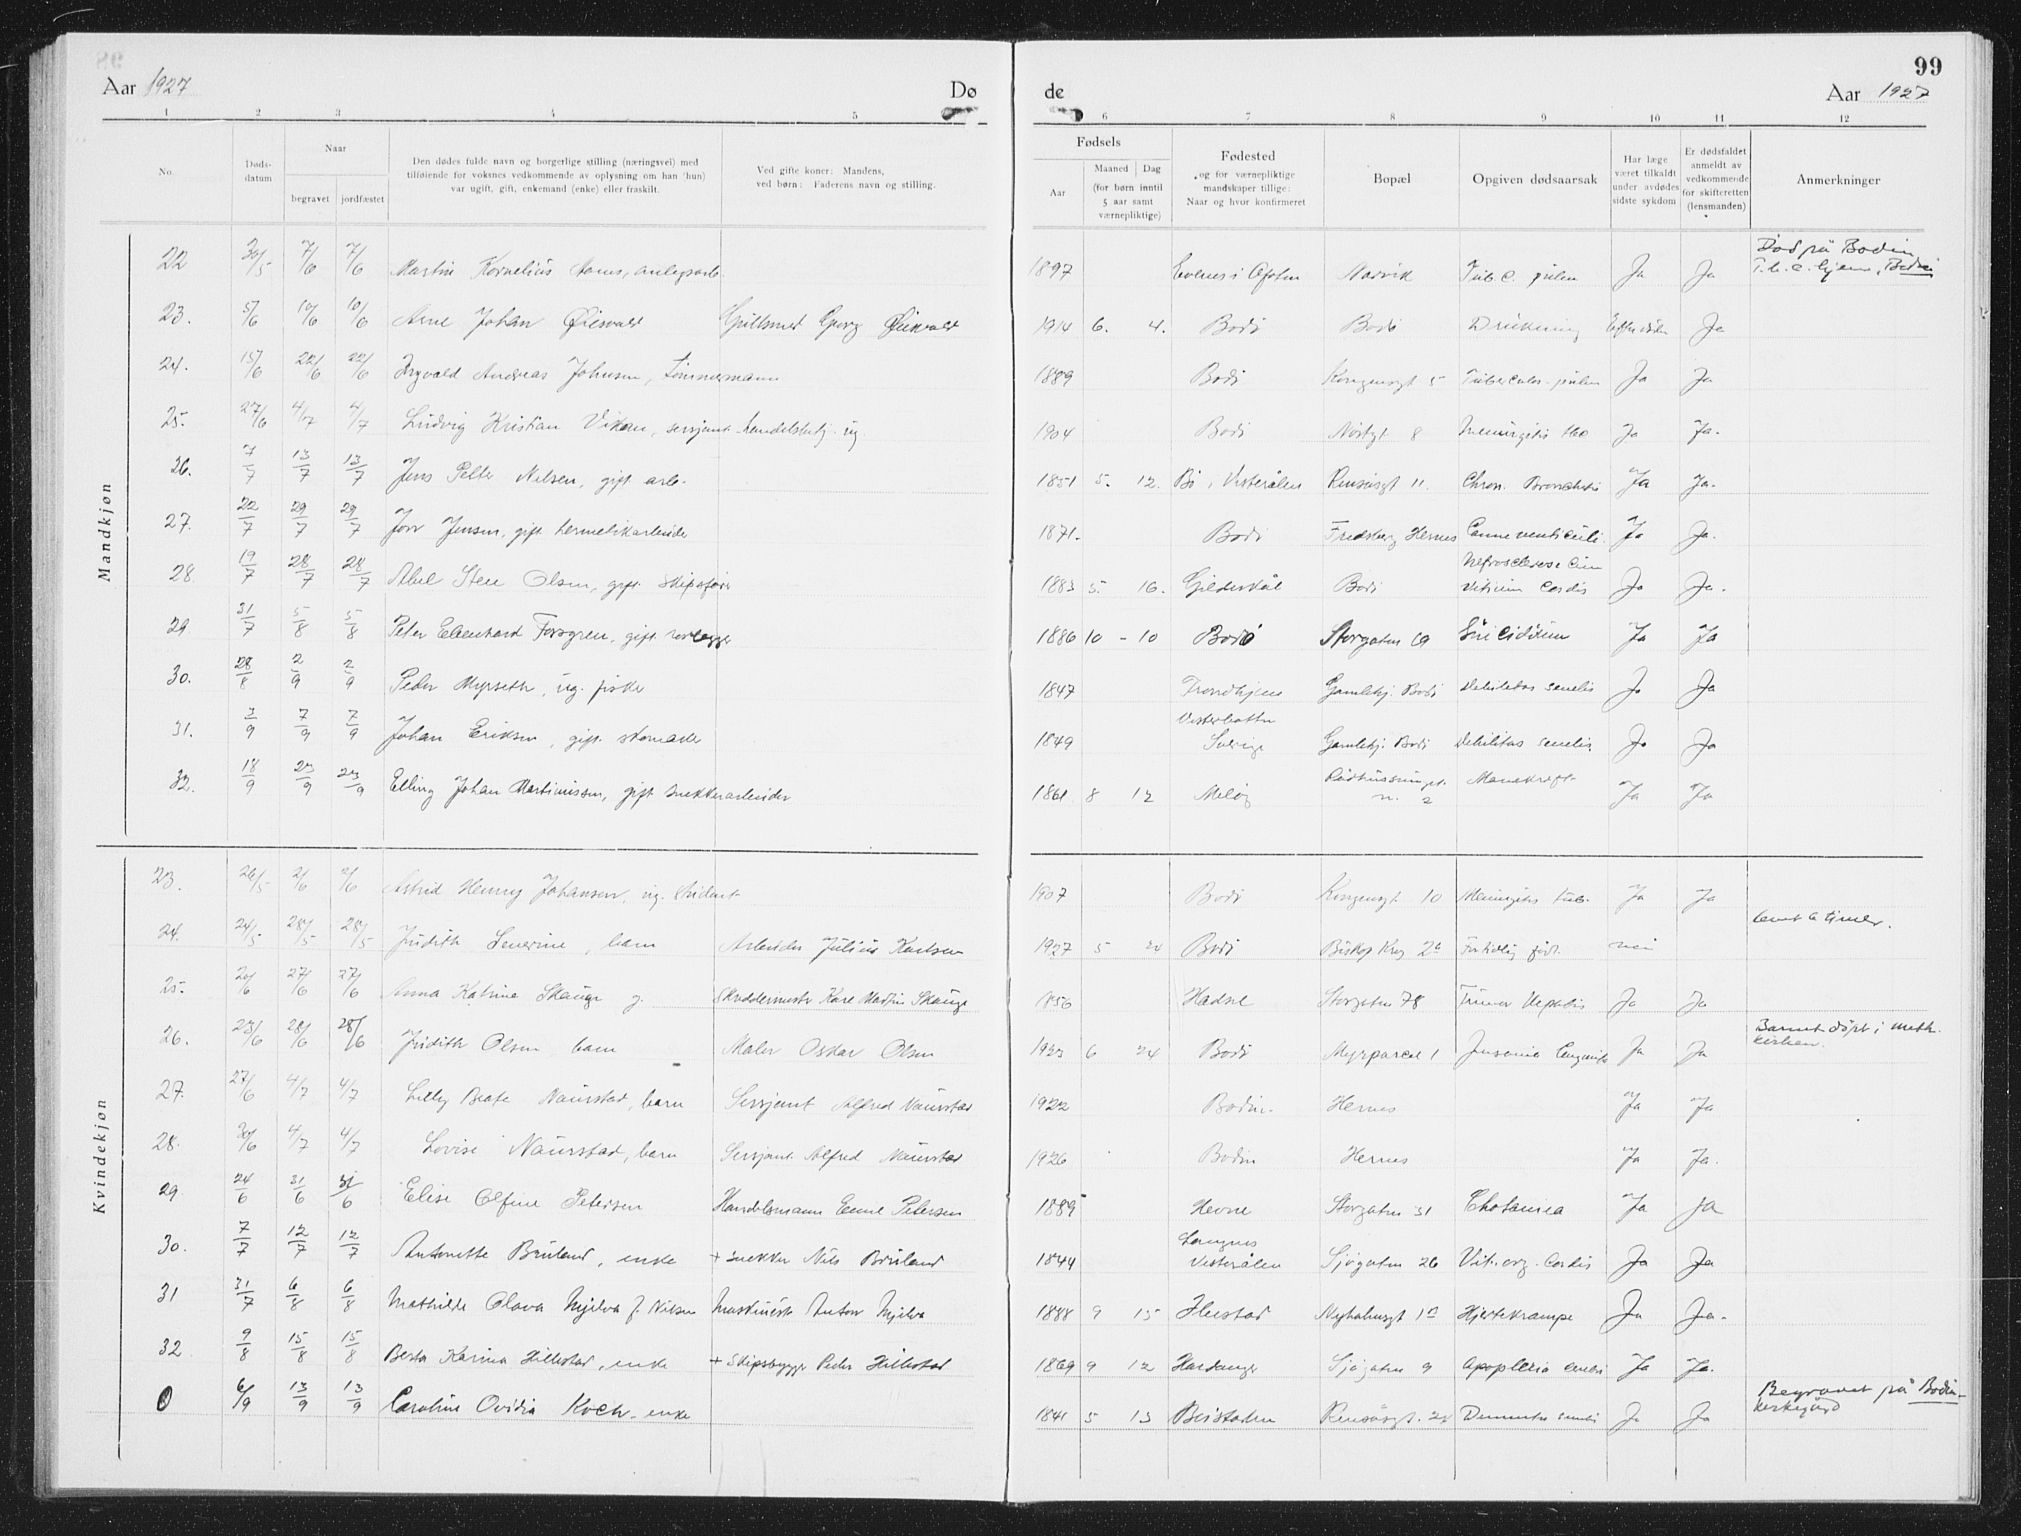 99
Aar 1927
Dø
de
Aar 1927
1 2 3 4 5 6 7 8 9 10 11 12
No.
Døds-
datum
Naar
begravet
jordfæstet
Den dødes fulde navn og borgerlige stilling (næringsvei) med
tilføiende for voksnes vedkommende av oplysning om han (hun)
var ugift, gift, enkemand (enke) eller fraskilt.
Ved gifte koner: Mandens,
ved børn: Faderens navn og stilling.
Fødsels
Aar
Maaned
Dag
(for børn inntil
5 aar samt
værnepliktige)
Fødested
og for værnepliktige
mandskaper tillige:
Naar og hvor konfirmeret
Bopæl
Opgiven dødsaarsak
Har læge
været tilkaldt
under avdødes
sidste sykdom
Er dødsfaldet
anmeldt av
vedkommende
for skifteretten
(lensmanden)
Anmerkninger
Mandkjøn
22 30/5 7/6 7/6 Martin Kornelius 1897 Evenes i Ofoten Narvik Tub. c. pulm Ja Ja Død på Bodin
T.b.c. hjem, Bodin
23. 5/6 10/6 10/6 Arne Johan Øiesvald Gullsmed Georg Øiesvald 1914 6. 4. Bodø Bodø Drukning Ja
24. 15/6 22/6 22/6 Ingvald Andreas Johnsen, tømmermann 1889 Bodø Kongensgt 5 Tuberculos. pulm Ja Ja
25. 27/6 4/7 4/7 Ludvig Kristian Vikan, sersjant handelsbetj. ug. 1904 Bodø 8 Meningitis tbc Ja Ja.
26. 7/7 13/7 13/7 Jens Petter Nilsen, gift arb. 1851 5. 12. Bø i Vesterålen Rensåsgt 11. Chron. Bronchitis Ja Ja.
27. 22/7 29/7 29/7 Jensen, gift hermetikarbeider 1871. Bodø Fredsberg Hernes Canc. ventriculi. Ja Ja.
28. 19/7 28/7 28/7 Abel Sten Olsen, gift skipsfører 1883 5. 16. Gildeskål Bodø Nefrosclerose cum
Vitium Cordis Ja Ja.
29 31/7 5/8 5/8 Peter Edenhard Forsgren, gift rørlegger 1886 10 - 10 Bodø Storgaten 69 Suicidium Ja Ja
30. 28/8 2/9 2/9 Peder Myrseth, ug. fisker 1847 Trondhjem Gamlehj. Bodø Debilitas senilis Ja Ja
31. 3/9 7/9 7/9 Johan Eriksen, gift skomaker 1849 Vesterbotten
Sverige Gamlehj. Bodø Debilitas senilis Ja Ja
32. 18/9 23/9 23/9 Elling Johan Martinussen, gift snekkerarbeider 1861 8 12 Meløy n. 2 Mavekreft Ja Ja
Kvindekjøn
23. 26/5 2/6 2/6 Astrid Henny Johansen, ug. student 1907 Bodø Kongensgt 10 Meningitis tub. Ja Ja
24. 24/5 28/5 28/5 Judith Severine, barn Arbeider Julius Karlsen 1927 5 24 Bodø Biskop Krog 2a Fortidlig født. nei levet 6 timer.
25. 20/6 27/6 27/6 Anna Katrine Skauge g. Skreddermester Kare Martin Skauge 1856 Hadsel Storgaten 78 Tumor Hepatis Ja Ja
26. 23/6 28/6 28/6 Judith Olsen barn Maler Oskar Olsen 6 24 Bodø Myrparcel 1 Ja Ja Barnet døpt i meth.
kirken.
27. 27/6 4/7 4/7 Lilly Beate Naurstad, barn Sersjant Alfred Naurstad 1922 Bodin. Hernes Ja Ja
28. 30/6 4/7 4/7 Lovise Naurstad, barn Sersjant Alfred Naurstad 1926 Bodin Hernes Ja Ja.
29 24/6 31/6 31/6 Elise Olfine Petersen Handelsmann Emil Petersen 1889 Hevne Storgaten 31 Ja Ja
30. 7/7 12/7 12/7 Antonette Bruland, enke + snekker Nils Bruland 1844 Langnes
Vesterålen Sjøgaten 26 Vit. org. Cordis Ja Ja
31 31/7 6/8 6/8 Mathilde Olava Mjelva f. Nilsen Maskinist Anton Mjelva 1888 9 15 Nyholmsgt 1a Hjertekrampe Ja Ja.
32 9/8 15/8 15/8 Berta Karina Hillestad, enke + Skipsbygger Peder Hillestad 1869 9 12 Hardanger Sjøgaten 9 Apoplexia Ja Ja.
0 6/9 13/9 13/9 Caroline Ovidia Koch, enke 1841 5 13 Beistaden Rensåsgt. 24 Dementia senilis Ja Ja Begravet på Bodin
kirkegård